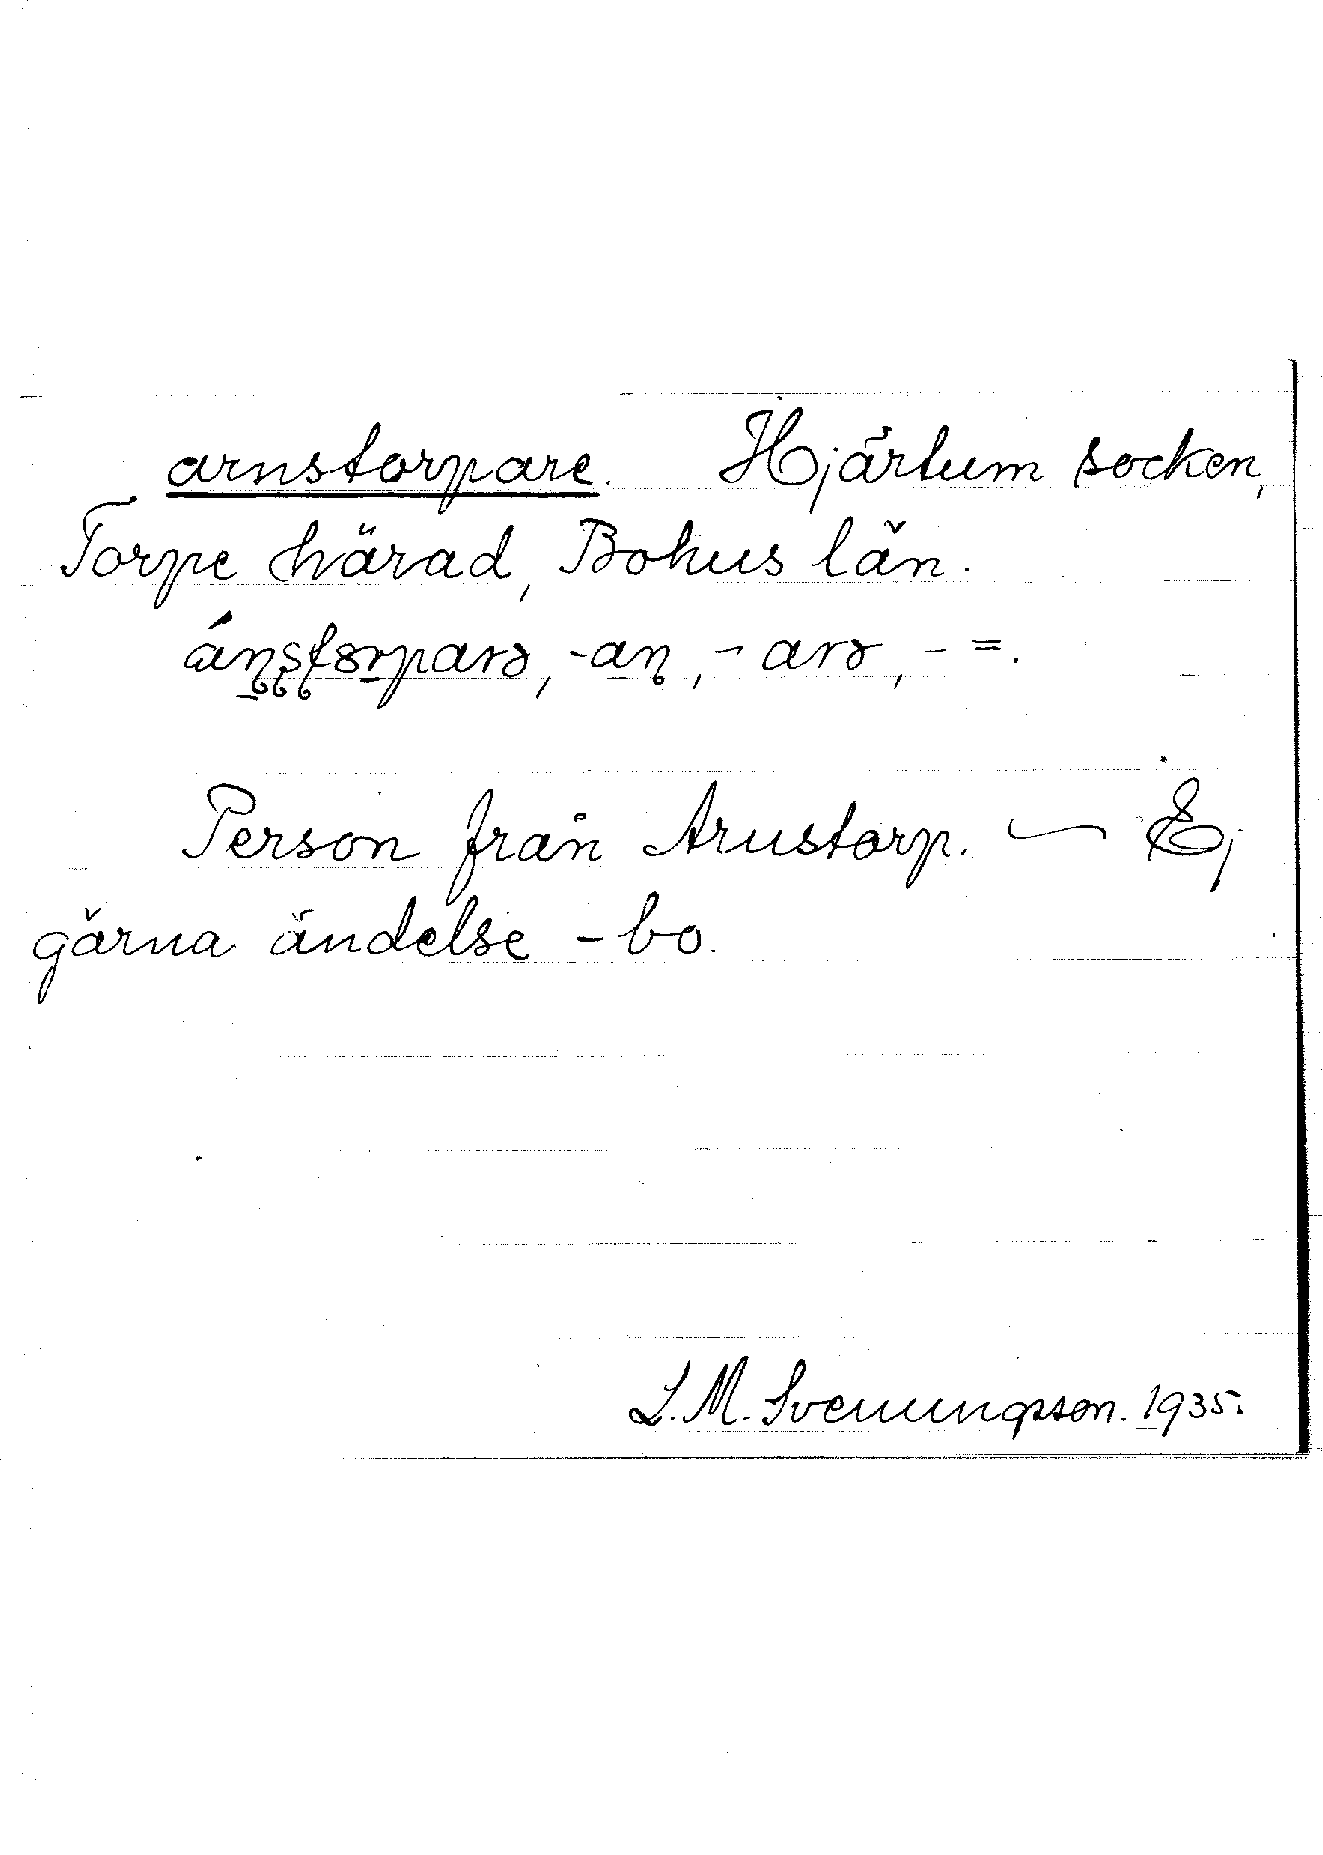 arnstorpare. Hjärtum socken,
Torpe härad, Bohus län.
-an, - arə, - =.
Person från Arnstorp. — Ej
gärna ändelse - bo.
L. M. Svenungsson. 1935.